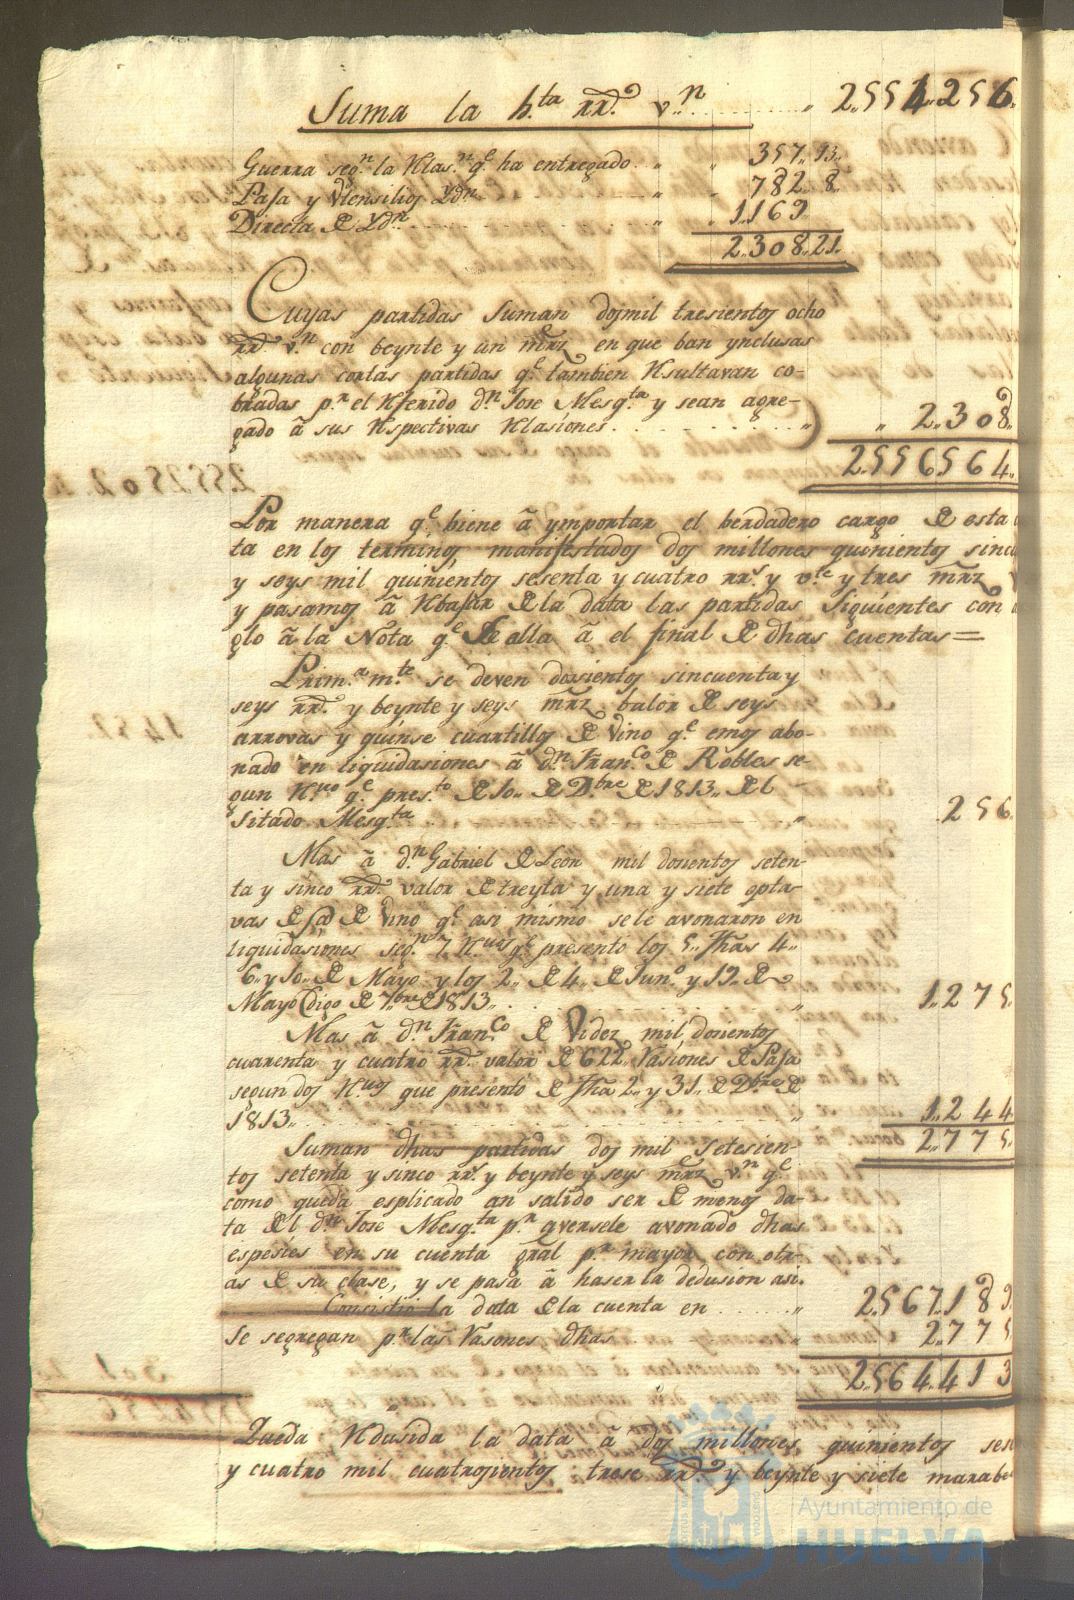 Suma la hta rrs. vn ........ „ 2„554„256.
Guerra segn. la Rlasn. qe ha entregado. „ „ 357„13„
Paja y Utensilios Ydn „ „ 782„8.
Directa de Ydn „ „ 1„169
2„308„21.
Cuyas partidas suman dosmil tresientos ocho
rrs. vn con beynte y un mrz en que ban ynclusas
algunas cortas partidas qe. tambien Rsultavan co-
bradas pr. el Rferido dn. Jose Mesqta y sean agre-
gado â sus Rspectivas Rlasiones. ........ „ „ 2„308
2„556„564„
Por manera qe. biene â ymportar el berdadero cargo de esta
ta en los terminos manifestados dos millones quinientos sinc
y seys mil quinientos sesenta y cuatro rrs. y vte y tres mrz
y pasamos â Rbajar de la data las partidas siguientes con
glo â la Nota qe. se alla â el final de dhas cuentas=
Prim.a mte se deven dosientos sincuenta y
seys rrs. y beynte y seys mrz balor de seys
arrovas y quinse cuartillos de vino qe. emos abo-
nado en liquidasiones â dn. Franco. de Robles se-
gun Rvo qe pres.to de 10„ de Dbre de 1813„ de l
sitado Mesqta ........ „ 256.
Mas â dn. Gabriel de Leon mil dosientos seten-
ta y sinco rrs. valor de treyta y una y siete opta-
vas de @ de vino qe. asi mismo sele avonaron en
liquidasiones segn. 7. Rvos qe presentó los 5„ fhas 4„
6„ y 10„ de Mayo y los 2„ de 4„ de Juno y 19„ de
Mayo digo de 7bre de 1813. ........ „ 1„275.
Mas â dn. Franco. de Videz mil dosientos
cuarenta y cuatro rrs. valor de 622„ rasiones de Paja
segun dos Rvos que presentó de fha 2„ y 31„ de Dbre de
1813 ........ „ 1„244
2„775.
Suman dhas partidas dos mil setesien-
tos setenta y sinco rrs. y beynte y seys mrz vn. qe
como queda esplicado an salido ser de menos da-
ta del dn. Jose Mesqta pr. aversele avonado dhas
espesies en su cuenta gral pr. mayor con otr-
as de su clase, y se pasa â haser la dedusion asi.
Consistió la data de la cuenta en ........ „ 2„567„189.
Se segregan pr. las rasones dhas „ 2„775.
2„564„413
Queda Rdusida la data â dos millones quinientos ses
y cuatro mil cuatrosientos trese rrs. y beynte y siete marabe
Ayuntamiento de
HUELVA